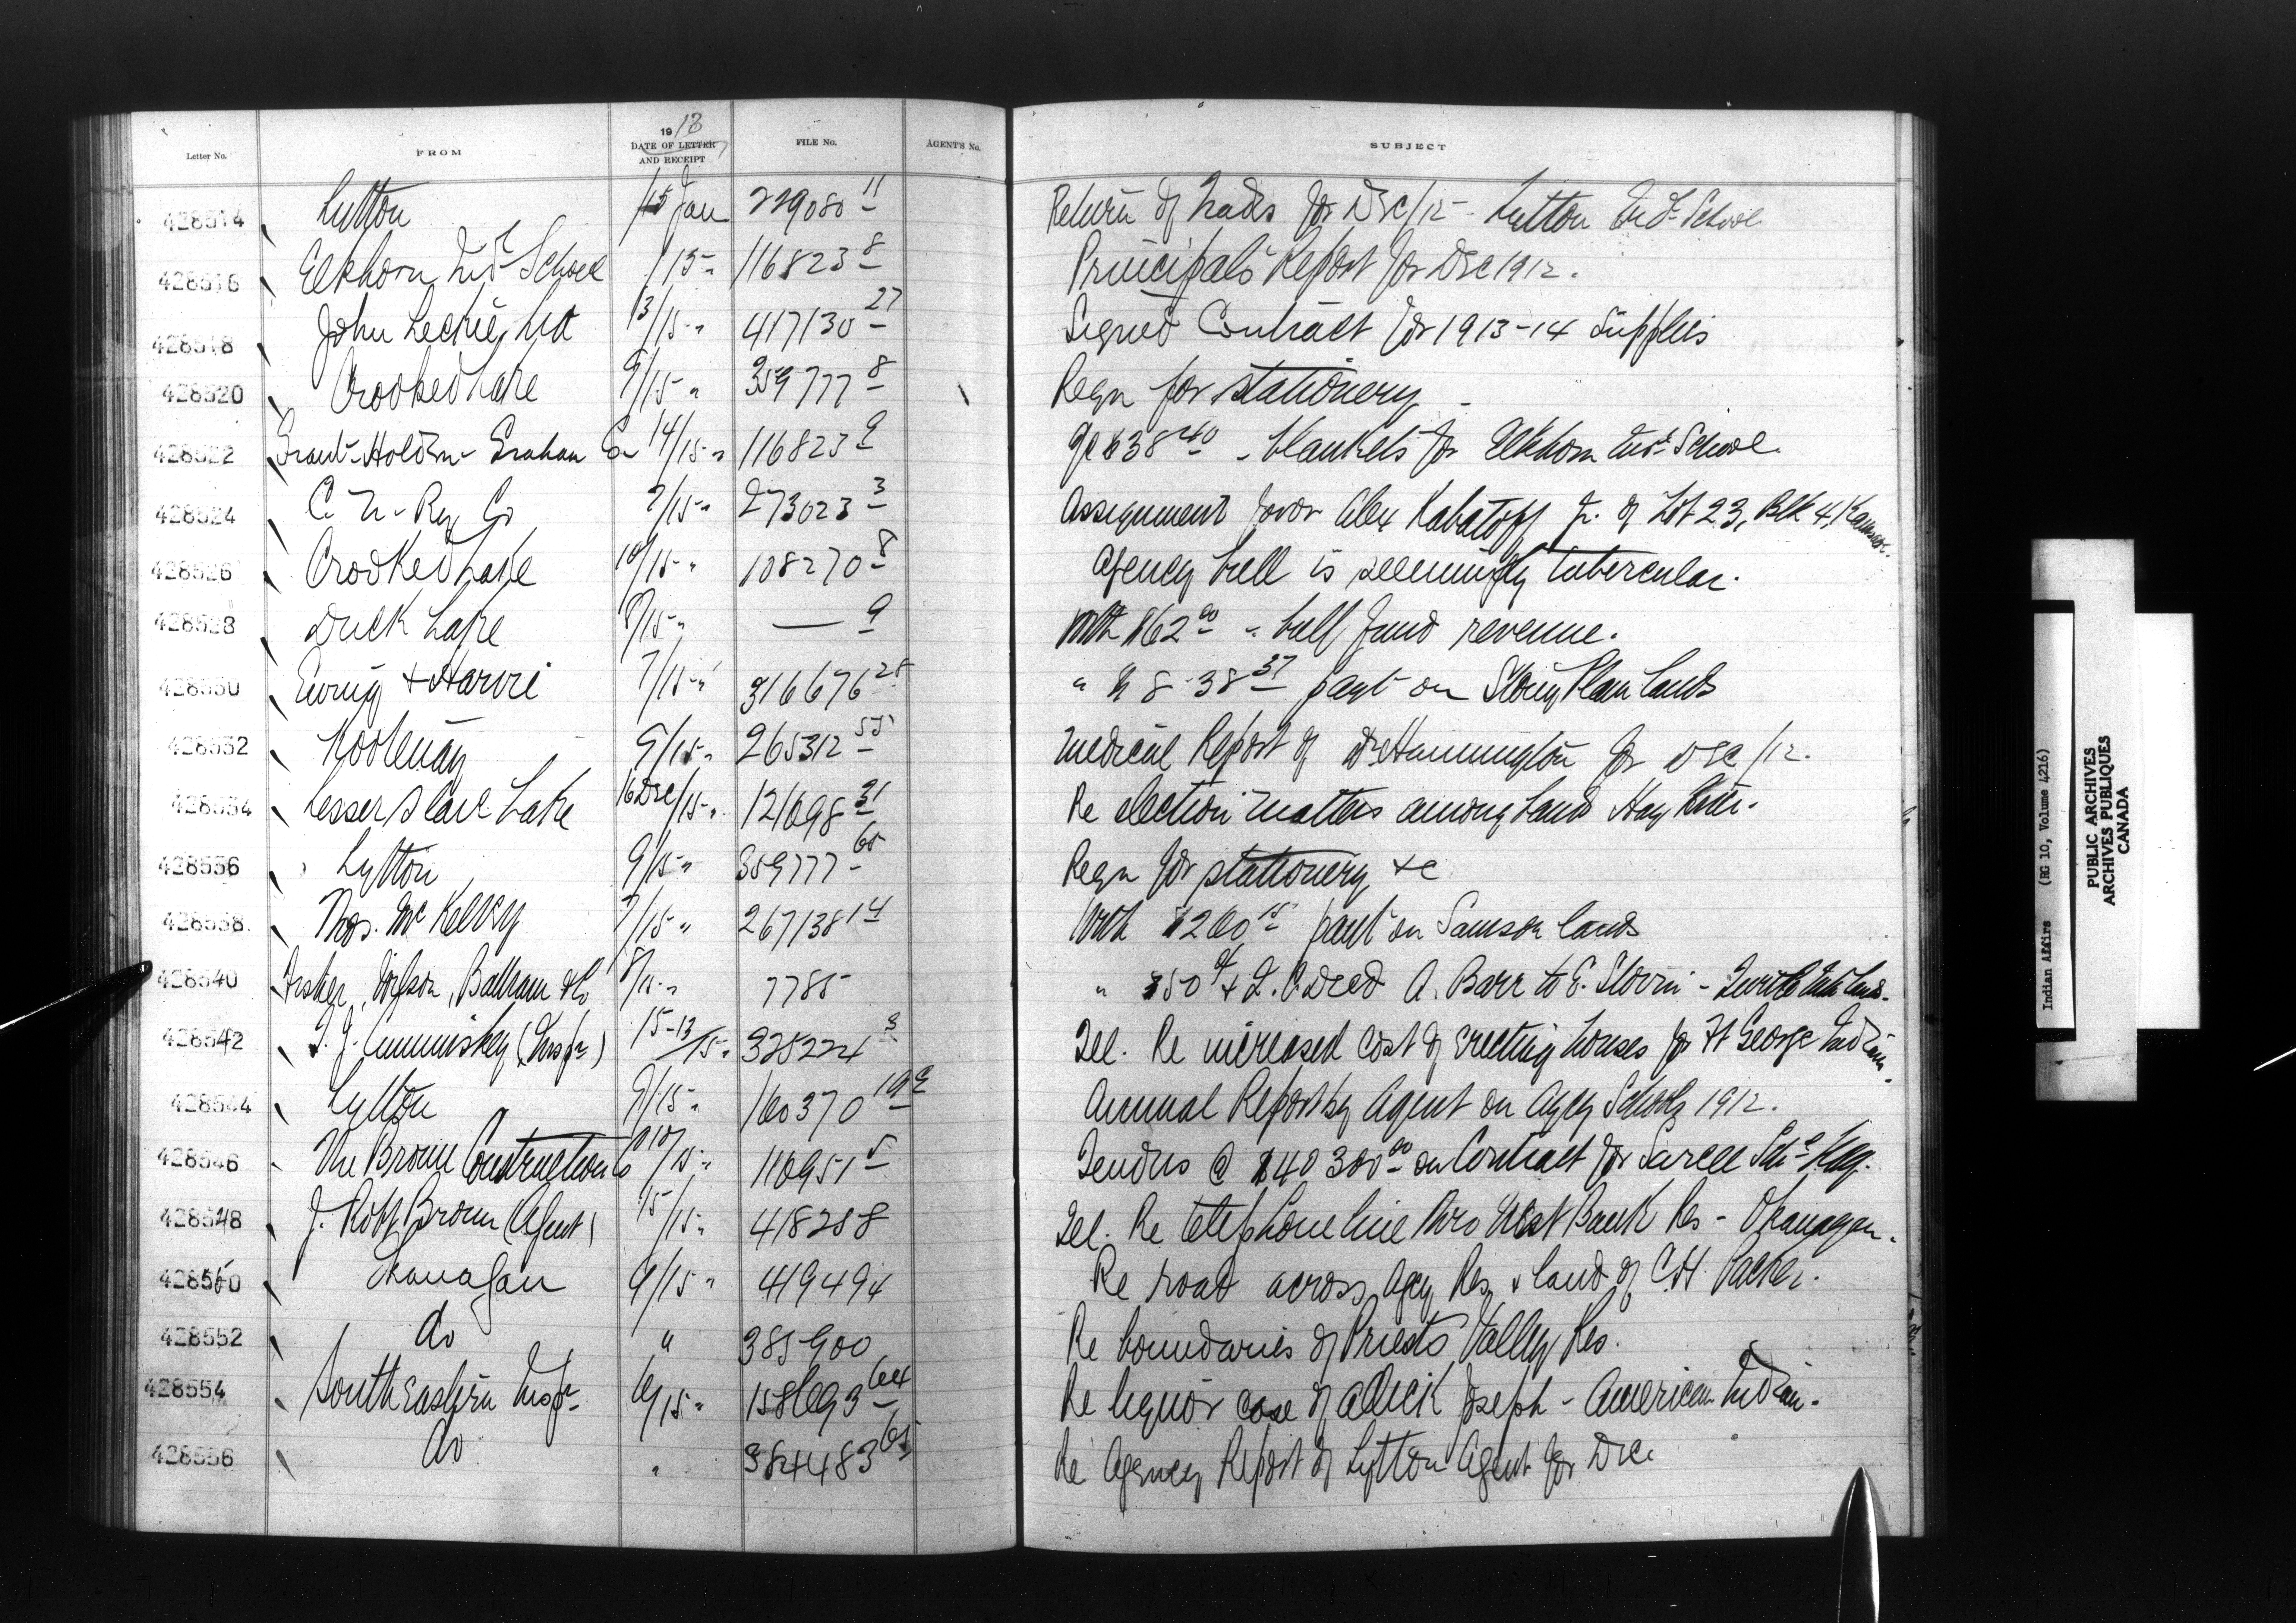 1913
Letter No. FROM DATE OF LETTER AND RECEIPT FILE No. AGENT'S No. SUBJECT
428514 Lytton /15 Jan 229080 11 Return of Trades for Dec/12 - Lytton Ind. School
428516 Elkhorn Ind. School /15 " 116823 8 Principals Report for Dec 1912.
428518 John Leckie Ltd 13/15 " 417130 27 Signed Contract for 1913-14 Supplies
428520 Crooked Lake 9/15 " 359777 8 Reqn for stationery
428522 Grant-Holden-Graham Co 14/15 " 116823 9 38 40 - blankets for Elkhorn Ind. School.
428524 C. N. Ry Co 7/15 " 273023 3 Assignment favor Alex Kabatoff Jr. of Lot 23, Blk 4, Kamsack.
428526 Crooked Lake 10/15 " 108270 8 Agency bull is seemingly tubercular.
428528 Duck Lake 8/15 " — 9 With $62 00 - bull fund revenue.
428530 Ewing & Harvie 7/15 " 316676 28 " 8 38 37 payt on Stony Plain Lands
428532 Kootenay 9/15 " 265312 55 Medical Report of Dr Hannington for Dec/12.
428534 Lesser Slave Lake 16 Dec/15 " 121698 31 Re election matters among bands Hay River.
428536 Lytton 9/15 " 359777 65 Reqn for stationery &c
428538 Thos. McKelvey 7/15 " 267138 14 With $260 15 payt on Samson lands
428540 Fisher, , Bathram & Co 8/15 " 7785 " $50 & Q. C. Deed A. Barr to E. Slovin -
428542 T. J. Cummiskey (Inspr) 15-13/15 " 325224 3 Tel. Re increased cost of erecting houses for Ft George Indians.
428544 Lytton 9/15 " 160370 19 Annual Report by Agent on Agcy Schools 1912.
428546 The Brown Construction Co 10/15 " 110951 5 Tenders @ $40300 00 on Contract for Sarcee Schl Bldg.
428548 J. Robt Brown (Agent) 15/15 " 418258 Tel. Re telephone line thro West Bank Res - Okanagan.
428550 Okanagan 9/15 " 419494 Re road across Agcy Res & land of C. H. Packer.
428552 do " 385900 Re boundaries of Priests Valley Res.
428554 South Eastern Inspr 9/15 " 158693 64 Re liquor case of Dick Joseph - American Indian.
428556 do " 384483 65 Re Agency Report of Lytton Agent for Dec.
Indian Affirs (RG 10, Volume 4216)
PUBLIC ARCHIVES
ARCHIVES PUBLIQUES
CANADA